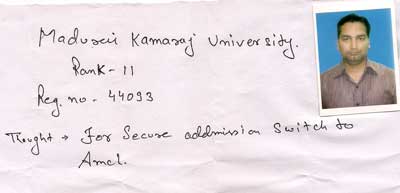 Madurai Kamaraj University.
Rank - 11
Reg. no - 44093
Thought → For Secure addmission switch to
Amcl.